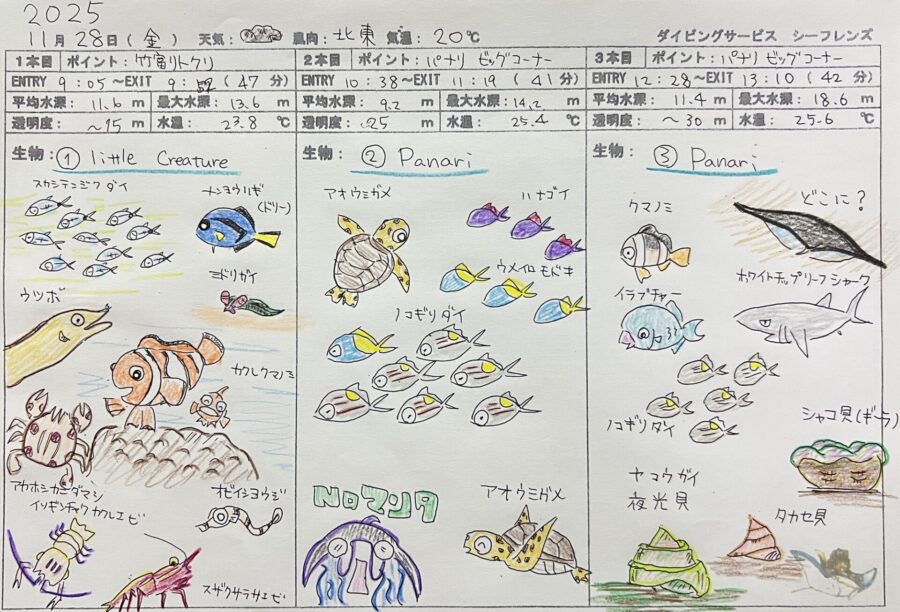 2025
11月 28日 (金) 天気: 風向: 北東 気温: 20℃ ダイビングサービス シーフレンズ
1本目 ポイント: 竹富リトクリ
ENTRY 9:05 ~EXIT 9:52 (47 分)
平均水深: 11.6 m 最大水深: 13.6 m
透明度: ~15 m 水温: 23.8 ℃
生物: ① little Creature
スカシテンジクダイ
ナンヨウハギ
(ドリー)
ミドリガイ
ウツボ
カクレクマノミ
アカホシカニダマシ
イソギンチャクカクレエビ
オビイシヨウジ
スザクサラサエビ
2本目 ポイント: パナリ ビッグコーナー
ENTRY 10:38 ~EXIT 11:19 (41 分)
平均水深: 9.2 m 最大水深: 14.2 m
透明度: ~25 m 水温: 25.4 ℃
生物: ② Panari
アオウミガメ
ハナゴイ
ウメイロモドキ
ノコギリダイ
NOマンタ
アオウミガメ
3本目 ポイント: パナリ ビッグコーナー
ENTRY 12:28 ~EXIT 13:10 (42 分)
平均水深: 11.4 m 最大水深: 18.6 m
透明度: ~30 m 水温: 25.6 ℃
生物: ③ Panari
クマノミ
どこに?
イラブチャー
ホワイトチップリーフシャーク
ノコギリダイ
シャコ貝(ギーラ)
ヤコウガイ
夜光貝
タカセ貝